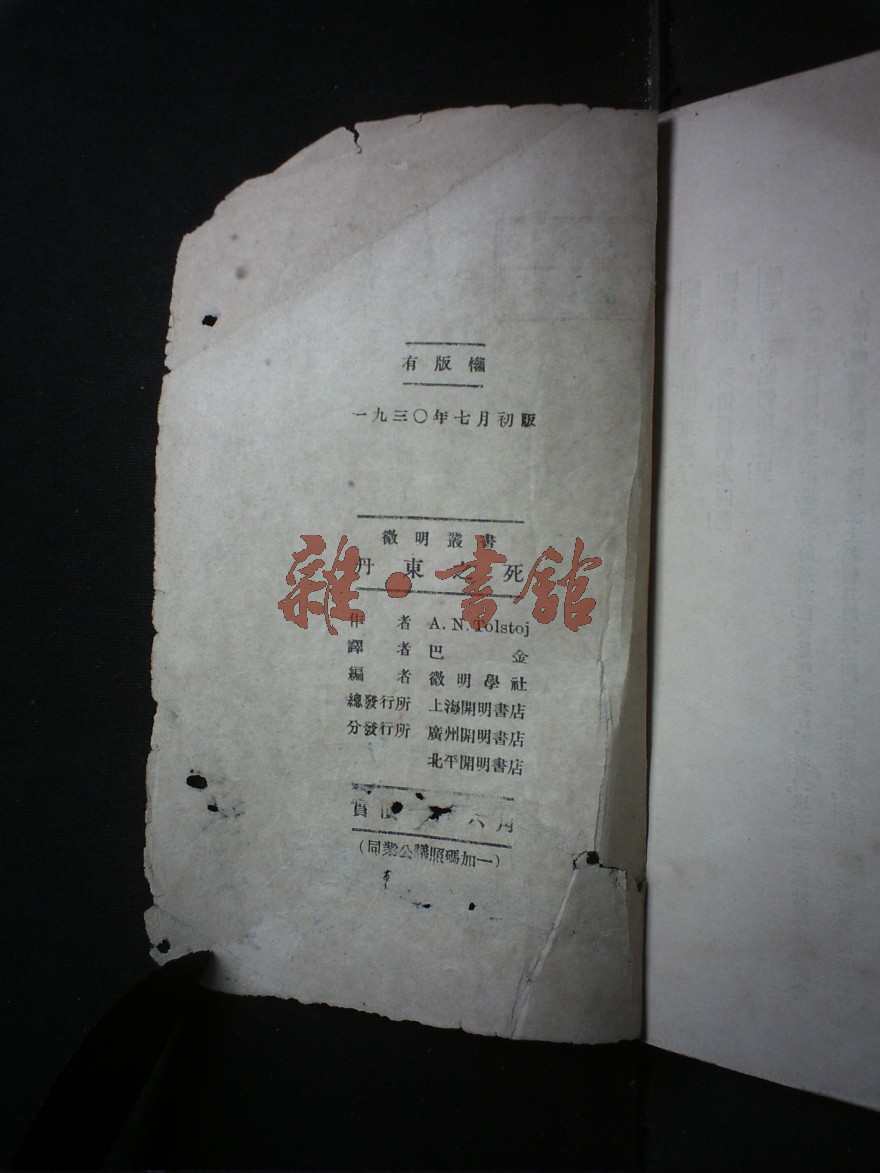 有版權
一九三〇年七月初版
微明叢書
丹東之死
作者 A. N. Tolstoj
譯者 巴金
編者 微明學社
總發行所 上海開明書店
分發行所 廣州開明書店
北平開明書店
實價 六角
(同業公議照碼加一)
雜·書館